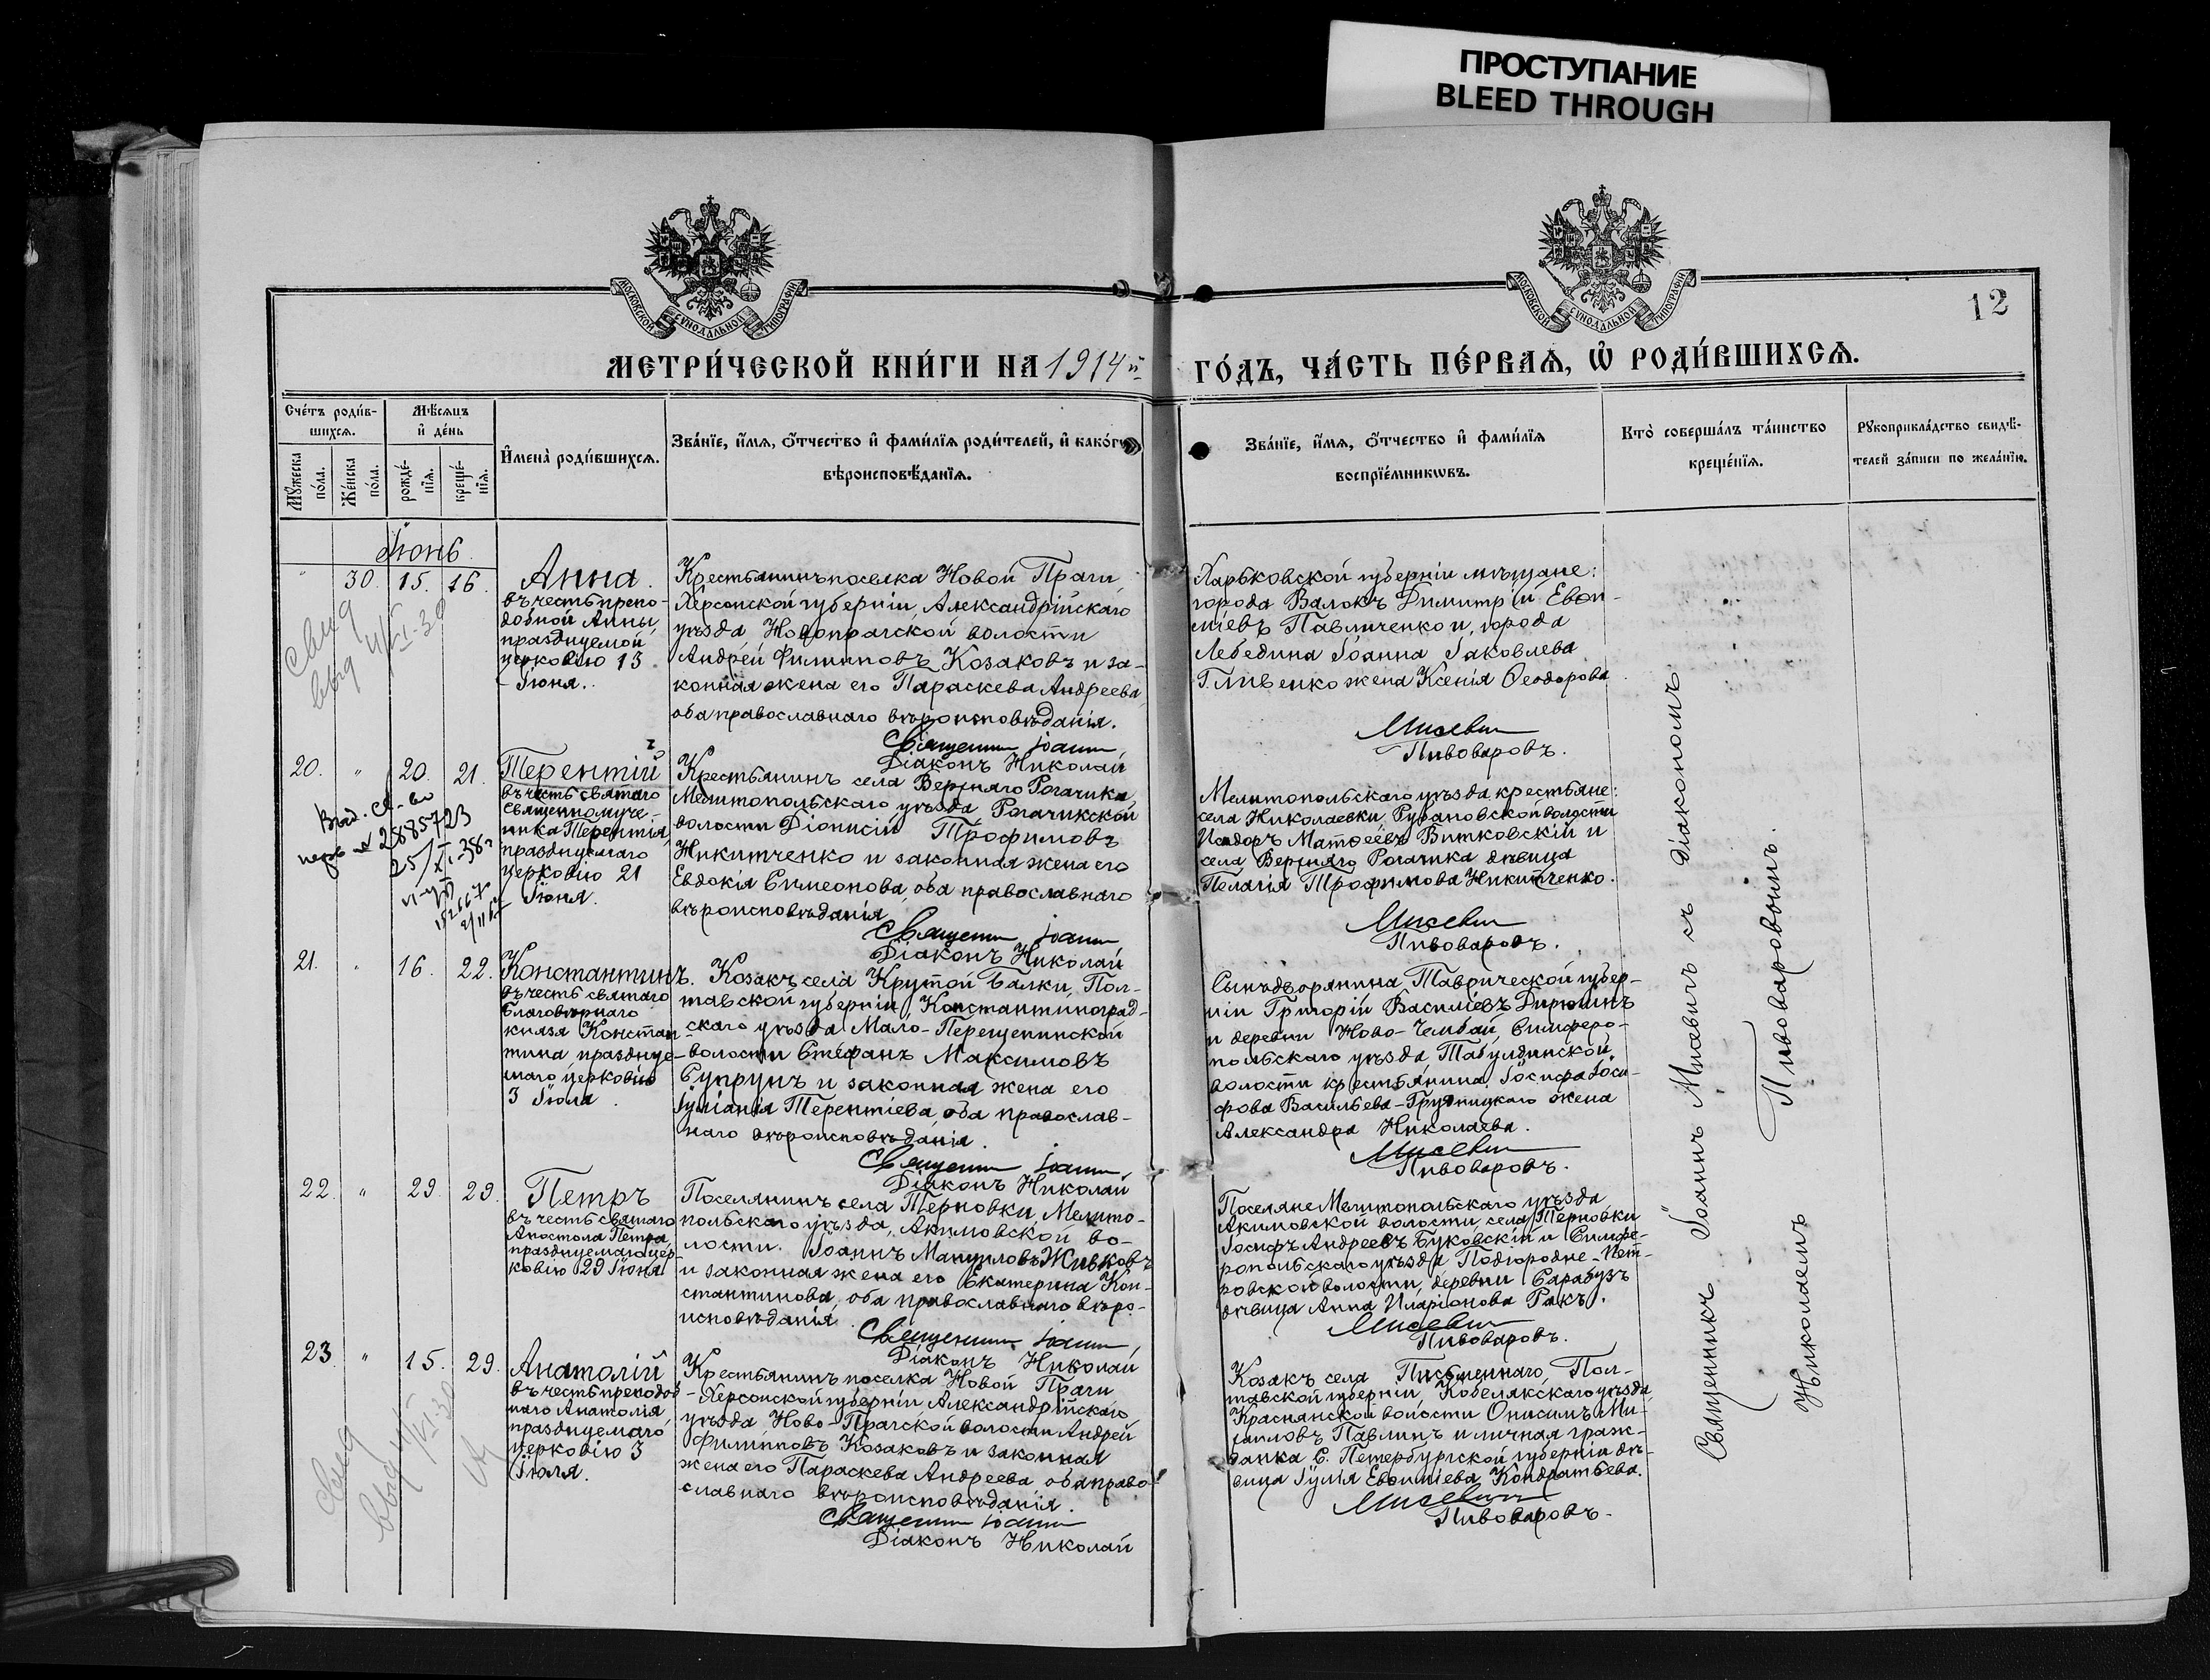 ПРОСТУПАНИЕ
BLEED THROUGH
МОСКОВСКОЙ СѴНОДАЛЬНОЙ ТИПОГРАФІИ
МОСКОВСКОЙ СѴНОДАЛЬНОЙ ТИПОГРАФІИ
12
МЕТРИ́ЧЕСКОЙ КНИ́ГИ НА 1914й
ГО́ДЪ, ЧА́СТЬ ПЕ́РВАѦ, Ѡ҆ РОДИ́ВШИХСѦ.
Сче́тъ роди́в-
шихсѧ.
Мꙋ́жеска
по́ла.
Же́нска
по́ла.
Мѣ́сѧцъ
и҆ де́нь
рожде́-
нїѧ.
креще́-
нїѧ.
И҆мена̀ роди́вшихсѧ.
Зва́нїе, и҆́мѧ, ѻ҆́тчество и҆ фами́лїѧ роди́телей, и҆ како́гѡ
вѣроисповѣ́данїѧ.
Зва́нїе, и҆́мѧ, ѻ҆́тчество и҆ фами́лїѧ
воспрїе́мникѡвъ.
Кто̀ соверша́лъ та́инство
креще́нїѧ.
Рꙋкоприкла́дство свидѣ́-
телей за́писи по жела́нїю.
Іюнь
" 30. 15. 16.
Анна.
въ честь препо-
добной Анны,
празднуемой
церковію 13
Іюня.
Крестьянинъ поселка Новой Праги
Херсонской губерніи, Александрійскаго
уѣзда, Новопрагской волости
Андрей Филипповъ Козаковъ и за-
конная жена его Параскева Андреева,
оба православнаго вѣроисповѣданія.
Священникъ Іоаннъ
Діаконъ Николай
Харьковской губерніи мѣщане:
города Валокъ Димитрій Евѳи-
міевъ Павличенко и города
Лебедина Іоанна Іаковлева
Гливенко жена Ксенія Ѳеодорова
Мисевичъ
Пивоваровъ.
свид
выд
20. " 20. 21.
Терентій
въ честь святаго
священномуче-
ника Терентія,
празднуемаго
церковію 21
Іюня.
Крестьянинъ села Верхняго Рогачика,
Мелитопольскаго уѣзда, Рогачикской
волости Діонисій Трофимовъ
Никитченко и законная жена его
Евдокія Симеонова, оба православнаго
вѣроисповѣданія
Священникъ Іоаннъ
Діаконъ Николай
Мелитопольскаго уѣзда, крестьяне:
села Николаевки, Рубановской волости
Исидоръ Матѳеевъ Витковскій и
села Верхняго Рогачика дѣвица
Пелагія Трофимова Никитченко.
Мисевичъ
Пивоваровъ.
Выд. св-во
2885723
21. " 16. 22.
Константинъ.
въ честь святаго
благовѣрнаго
князя Констан-
тина празднуе-
маго церковію
3 Іюля.
Козакъ села Крутой Балки, Пол-
тавской губерніи, Константиноград-
скаго уѣзда, Мало-Перещепинской
волости Стефанъ Максимовъ
Супрунъ и законная жена его
Іуліанія Терентіева, оба православ-
наго вѣроисповѣданія.
Священникъ Іоаннъ
Діаконъ Николай
Сынъ дворянина, Таврической губер-
ніи Григорій Василіевъ Дирюшинъ
и деревни Ново-Чембай, Симферо-
польскаго уѣзда, Табулдинской
волости крестьянина Іосифа Іоси-
фова Васильева-Грудницкаго жена
Александра Николаева.
Мисевичъ
Пивоваровъ.
22. " 29. 29.
Петръ
въ честь святаго
Апостола Петра,
празднуемаго цер-
ковію 29 Іюня
Поселянинъ села Терновки, Мелито-
польскаго уѣзда, Акимовской во-
лости. Іоаннъ Мануиловъ Живковъ
и законная жена его Екатерина Кон-
стантинова, оба православнаго вѣро-
исповѣданія.
Священникъ Іоаннъ
Діаконъ Николай
Поселяне Мелитопольскаго уѣзда
Акимовской волости, села Терновки
Іосифъ Андреевъ Буковскій и Симфе-
ропольскаго уѣзда Подгородне-Пет-
ровской волости, деревни Сарабузъ
дѣвица Анна Иларіонова Ракъ.
Мисевичъ
Пивоваровъ.
23. " 15. 29.
Анатолій
въ честь преподоб-
наго Анатолія,
празднуемаго
церковію 3
Іюля.
Крестьянинъ поселка Новой Праги
Херсонской губерніи Александрійскаго
уѣзда Ново-Прагской волости Андрей
Филипповъ Козаковъ и законная
жена его Параскева Андреева, оба право-
славнаго вѣроисповѣданія.
Священникъ Іоаннъ
Діаконъ Николай
Козакъ села Письменнаго, Пол-
тавской губерніи, Кобелякскаго уѣзда,
Краснянской волости Онисимъ Ми-
хаиловъ Павлинъ и личная граж-
данка С. Петербургской губерніи дѣ-
вица Іулія Евѳиміева Кондратьева.
Мисевичъ
Пивоваровъ.
свид
выд
Священникъ Іоаннъ Мисевичъ съ діакономъ
Николаемъ Пивоваровымъ.